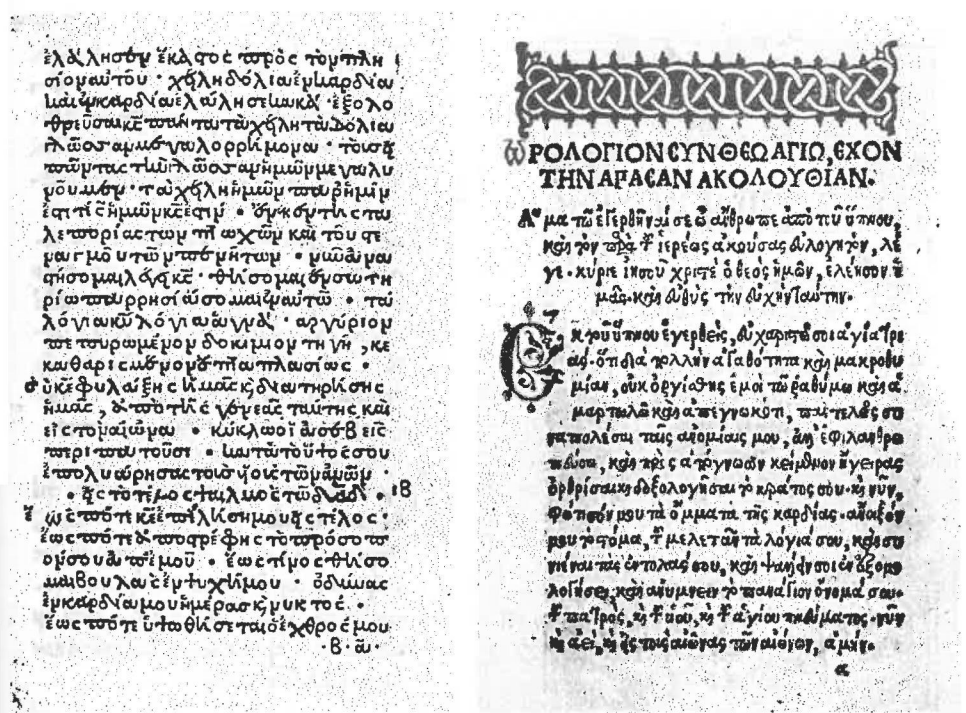 ἐλάλησεν ἕκαστος πρὸς τὸν πλη
σίον αὐτοῦ · χείλη δόλια ἐν καρδία
καὶ ἐν καρδία ἐλάλησε κακά · ἐξολο
θρεῦσαι κς πάντα τὰ χείλη τὰ δόλια
γλῶσσαν μεγαλορρήμονα · τοὺς εἰ
πόντας τὴν γλῶσσαν ἡμῶν μεγαλυ
νοῦμεν · τὰ χείλη ἡμῶν παρ ἡμῖν
ἐστι τίς ἡμῶν κς ἐστιν · ἕνεκεν τῆς τα
λαιπωρίας τῶν πτωχῶν καὶ τοῦ στε
ναγμοῦ τῶν πενήτων · νῦν ἀνα
στήσομαι λέγει κς · θήσομαι ἐν σωτη
ρίω παρρησιάσομαι ἐν αὐτῶ · τὰ
λόγια κυ λόγια ἁγνά · ἀργύριον
πεπυρωμένον δοκίμιον τῆ γῆ, κε
καθαρισμένον ἑπταπλασίως ·
σὺ κε φυλάξης ἡμᾶς κ διατηρήσης
ἡμᾶς, ἀπὸ τῆς γενεᾶς ταύτης καὶ
εἰς τὸν αἰῶνα · κύκλω οἱ ἀσεβεῖς
περιπατοῦσι · κατὰ τὸ ὕψος σου
ἐπολυώρησας τοὺς υἱοὺς τῶν ανων
· εἰς τὸ τέλος ψαλμὸς τῶ δαδ · ιβ
ἕως πότε κε ἐπιλήση μου εἰς τέλος ·
ἕως πότε ἀποστρέφης τὸ πρόσωπ
ον σου ἀπ ἐμοῦ · ἕως τίνος θήσο
μαι βουλὰς ἐν ψυχῆ μου · ὀδύνας
ἐν καρδία μου ἡμέρας κ νυκτός ·
ἕως πότε ὑψωθήσεται ὁ ἐχθρός μου
· β · αν
ὩΡΟΛΟΓΙΟΝ ΣΥΝ ΘΕΩ ΑΓΙΩ, ΕΧΟΝ
ΤΗΝ ΑΠΑΣΑΝ ΑΚΟΛΟΥΘΙΑΝ.
Ἅμα τῶ ἐγερθῆναί σε ὦ ἄνθρωπε ἀπὸ τοῦ ὕπνου,
καὶ τὸν παρὰ τ ἱερέως ἀκούσας εὐλογητὸν, λέ
γε · κύριε ἰησοῦ χριστὲ ὁ θεὸς ἡμῶν, ἐλέησον ἡ
μᾶς. καὶ εὐθὺς τὴν εὐχὴν ταύτην.
Ἐκ τοῦ ὕπνου ἐγερθεὶς, εὐχαριστῶ σοι ἁγία τρι
ὰς. ὅτι διὰ πολλὴν ἀγαθότητα καὶ μακροθυ
μίαν, οὐκ ὀργίσθης ἐμοὶ τῶ ῥαθύμω καὶ ἁ
μαρτωλῶ καὶ ἀπεγνωκότι,
ναπολέσαι ταῖς ἀνομίαις μου, ἀλλ ἐφιλανθρω
πεύσω, καὶ πρὸς ἀπόγνωσιν κείμενον ἤγειρας
ὀρθρίσαι κ δοξολογῆσαι τὸ κράτος σου · κ νῦν,
φώτισόν μου τὰ ὄμματα τῆς καρδίας · ἄνοιξόν
μου τὸ στόμα, τ μελετᾶν τὰ λόγια σου, καὶ συ
νιέναι τὰς ἐντολάς σου, καὶ ψάλλειν σοι ἐν ἐξομο
λογήσει, καὶ ἀνυμνεῖν τὸ πανάγιον ὄνομά σου.
τ πατρὸς, κ τ υἱοῦ, κ τ ἁγίου πνεύματος · νῦν
κ ἀεὶ, κ εἰς τοὺς αἰῶνας τῶν αἰώνων, ἀμήν.
α